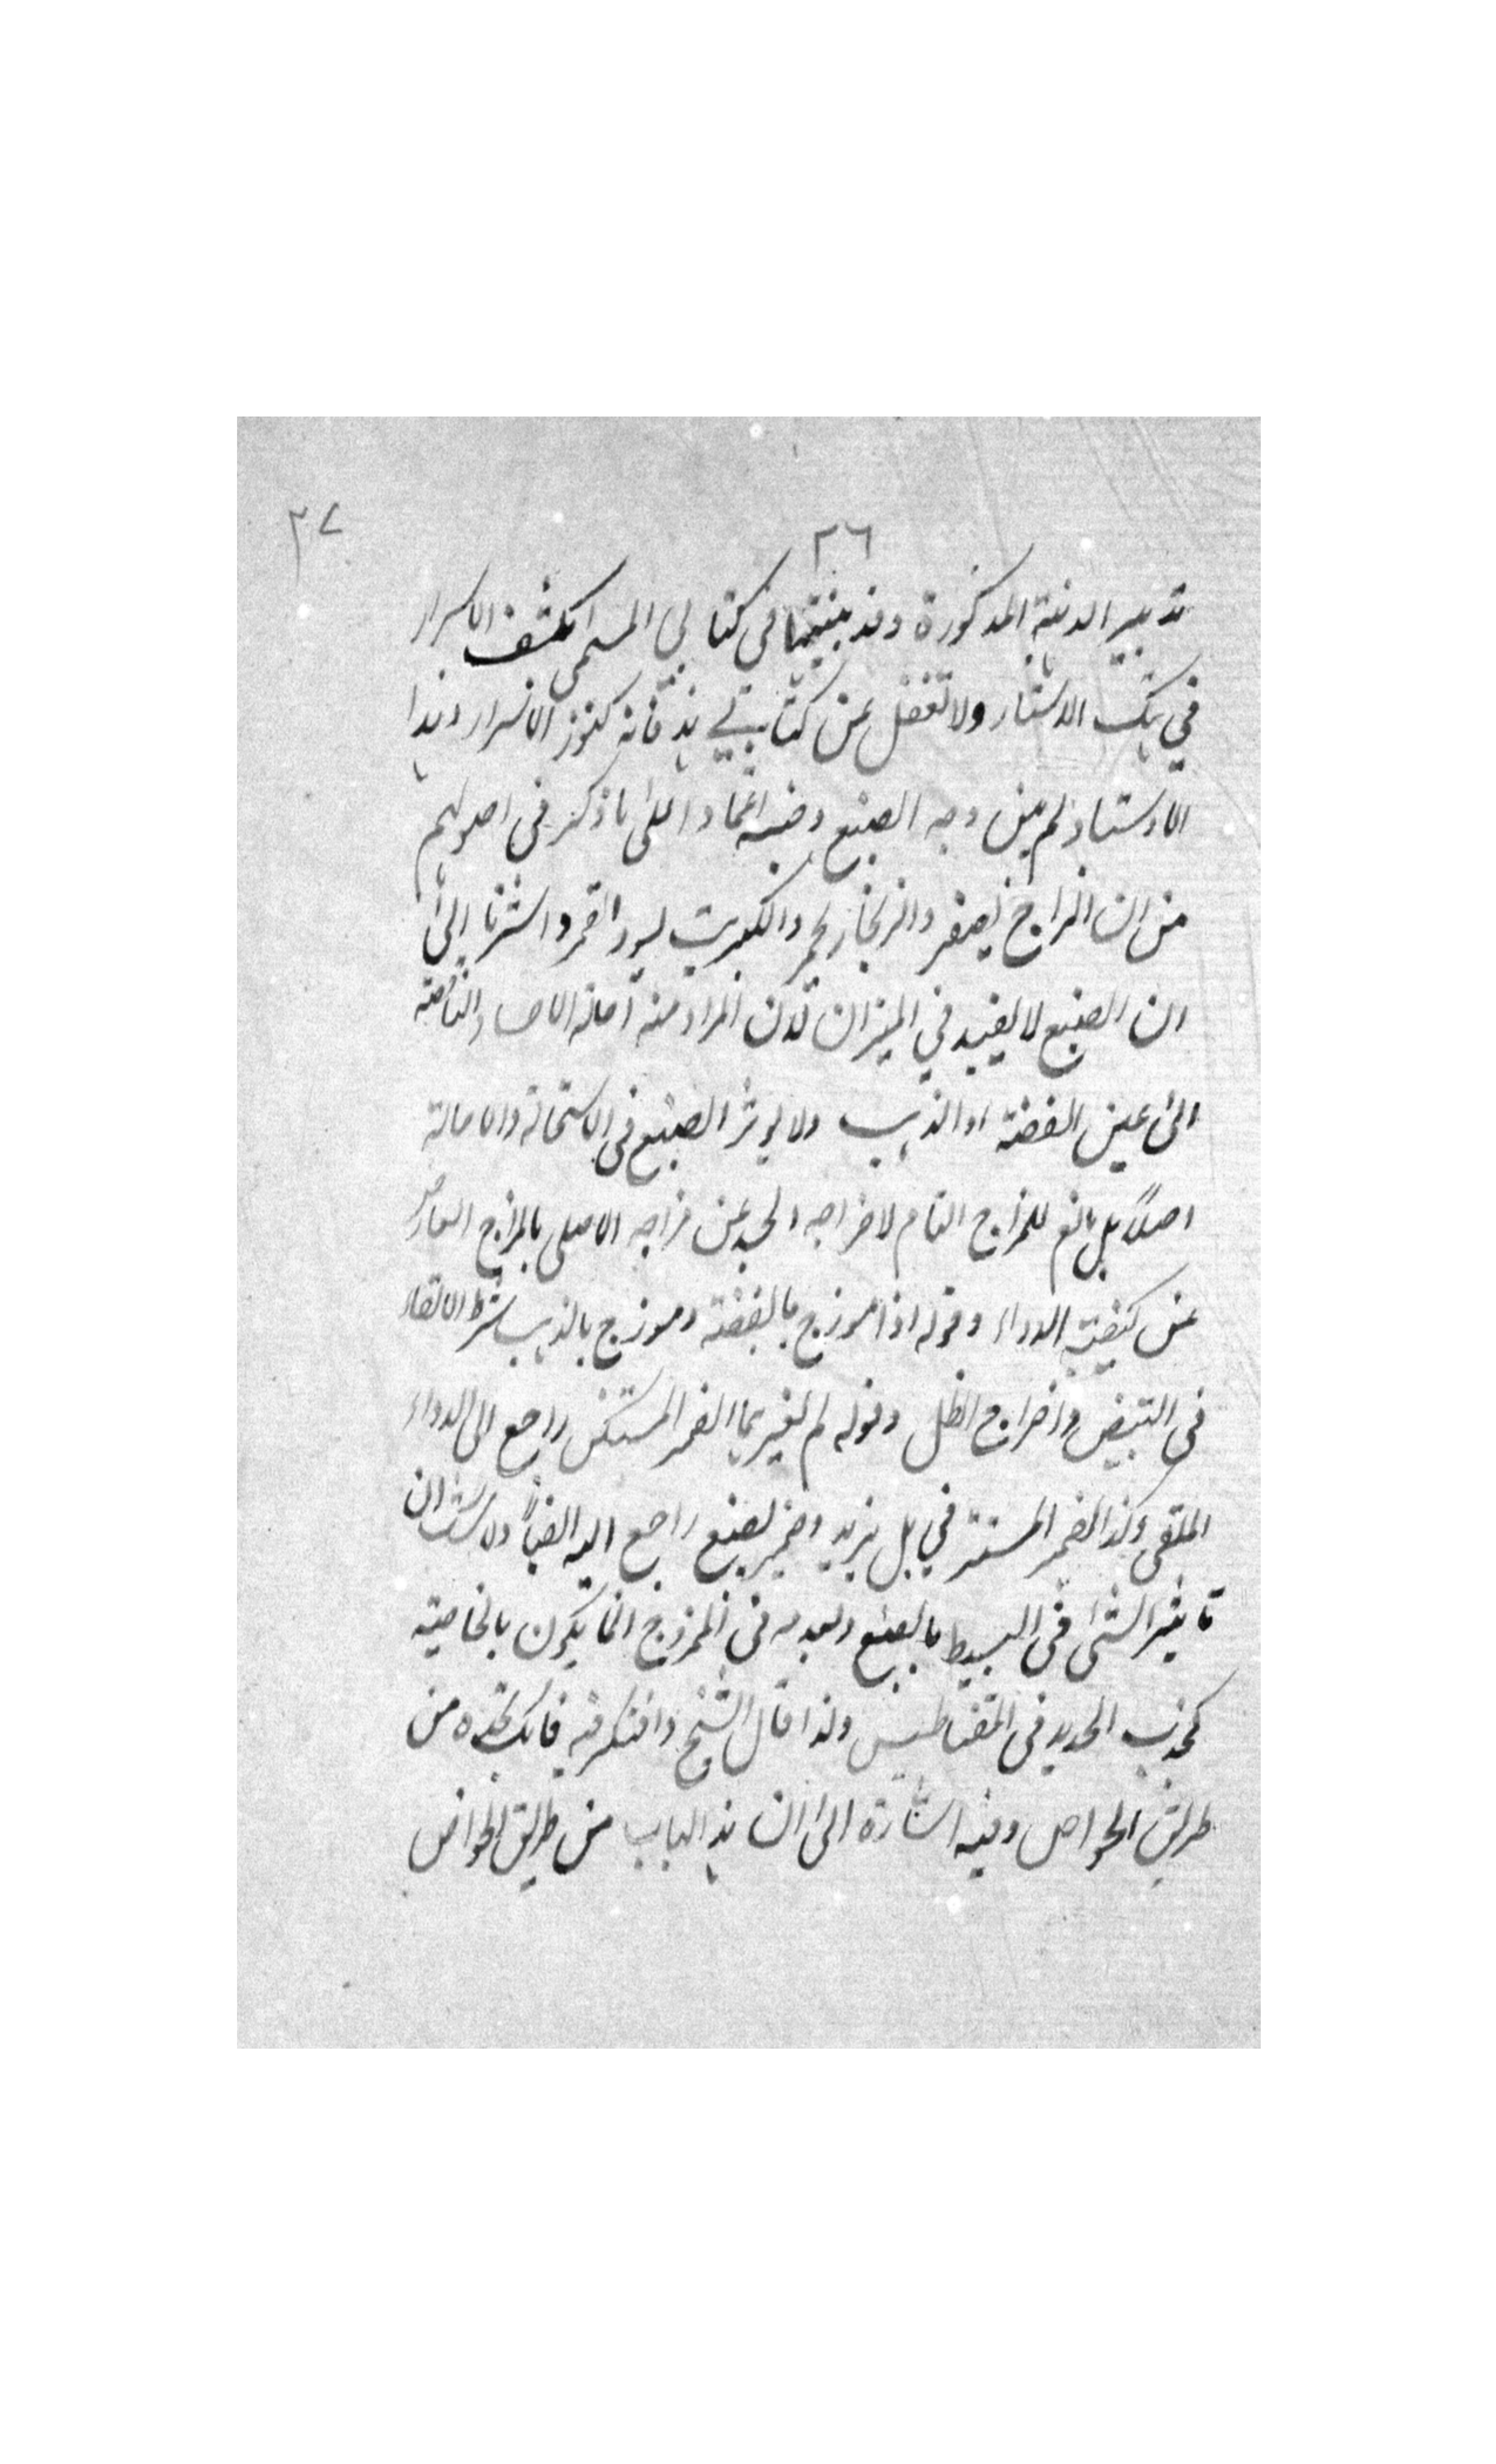 ٢٧
٢٦
تدبير المدنية المذكورة وقد بينتها في كتابي المسمى بكشف الاسرار
في هتك الاستار ولا تغفل عن كتابي هذا فانه كنوز الاسرار وهذا
الاوستاد لم يبين وجه الصبغ وفيه اعتمادا على ما ذكر في اصولهم
من ان الزاج يصفر والزنجار يحمر والكبريت يسود القمر واشرنا الى
ان الصبغ لا يفيد في الميزان لان المراد منه امالة الاجساد الناقصة
الى عين الفضة او الذهب ولا يوثر الصبغ في الاستحالة والامالة
اصلاً بل مانع للمزاج التام لاخراجه الجسد عن مزاجه الاصلي بالمزاج العارض
عن كيفية الدواء وقوله اذا موزج بالفضة وموزج بالذهب شرط الالقاء
في التبيض واخراج الظل وقوله لم يغيرها الضمير المستكن راجع الى الدواء
الملقى وكذا الضمير المستتر في بل يزيد وضمير يصبغ راجع اليه ايضاً ولا شك ان
تاثير الشئ في البسيط بالصبغ وبعدمه في الممزوج انما يكون بالخاصية
كجذب الحديد في المقناطيس ولذا قال الشيخ وافتكر فيه فانك تجده من
طريق الخواص وفيه اشارة الى ان هذا الباب من طريق الخواص